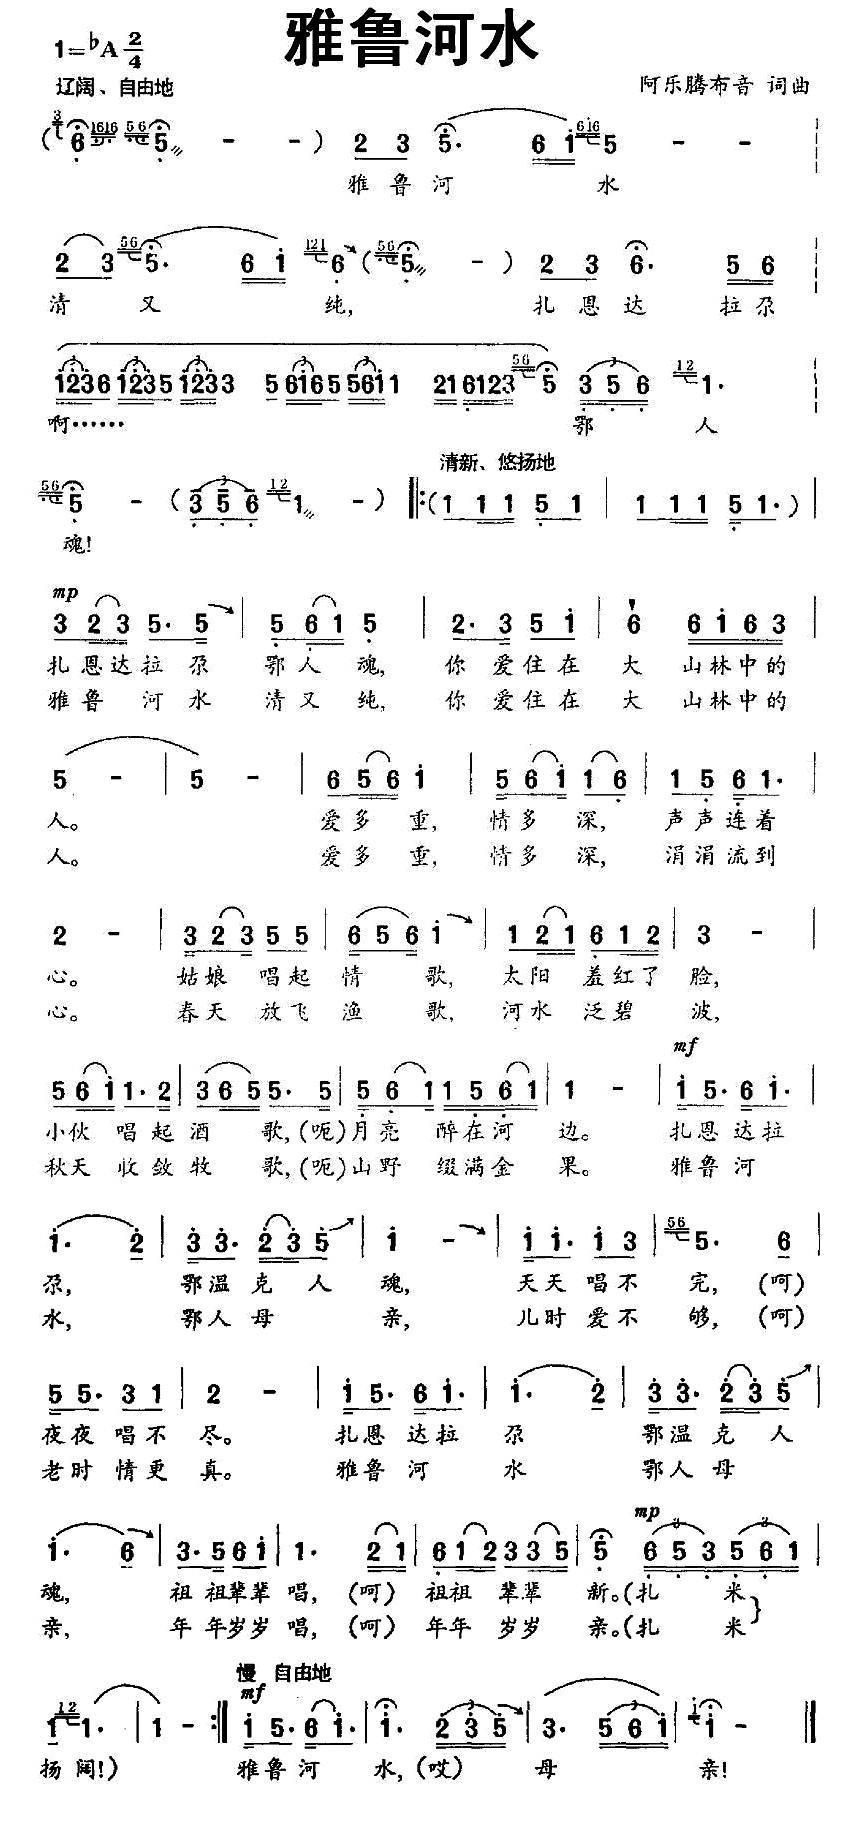 雅鲁河水
1=♭A 2/4
辽阔、自由地
阿乐腾布音 词曲
雅 鲁 河 水
清 又 纯, 扎 恩 达 拉尕
啊…… 鄂 人
清新、悠扬地
魂!
mp
扎恩达拉尕 鄂人魂, 你爱住在大 山林中的
雅鲁河水 清又纯, 你爱住在大 山林中的
人。 爱多重, 情多深, 声声连着
人。 爱多重, 情多深, 涓涓流到
心。 姑娘唱起情歌, 太阳羞红了脸,
心。 春天放飞渔歌, 河水泛碧波,
mf
小伙唱起酒歌,(呃)月亮醉在河边。 扎恩达拉
秋天收敛牧歌,(呃)山野缀满金果。 雅鲁河
尕, 鄂温克人魂, 天天唱不完,(呵)
水, 鄂人母亲, 儿时爱不够,(呵)
夜夜唱不尽。 扎恩达拉尕 鄂温克人
老时情更真。 雅鲁河水 鄂人母
mp
魂, 祖祖辈辈唱,(呵)祖祖辈辈新。(扎米
亲, 年年岁岁唱,(呵)年年岁岁亲。(扎米
慢 自由地
mf
扬阔!) 雅鲁河水,(哎)母亲!